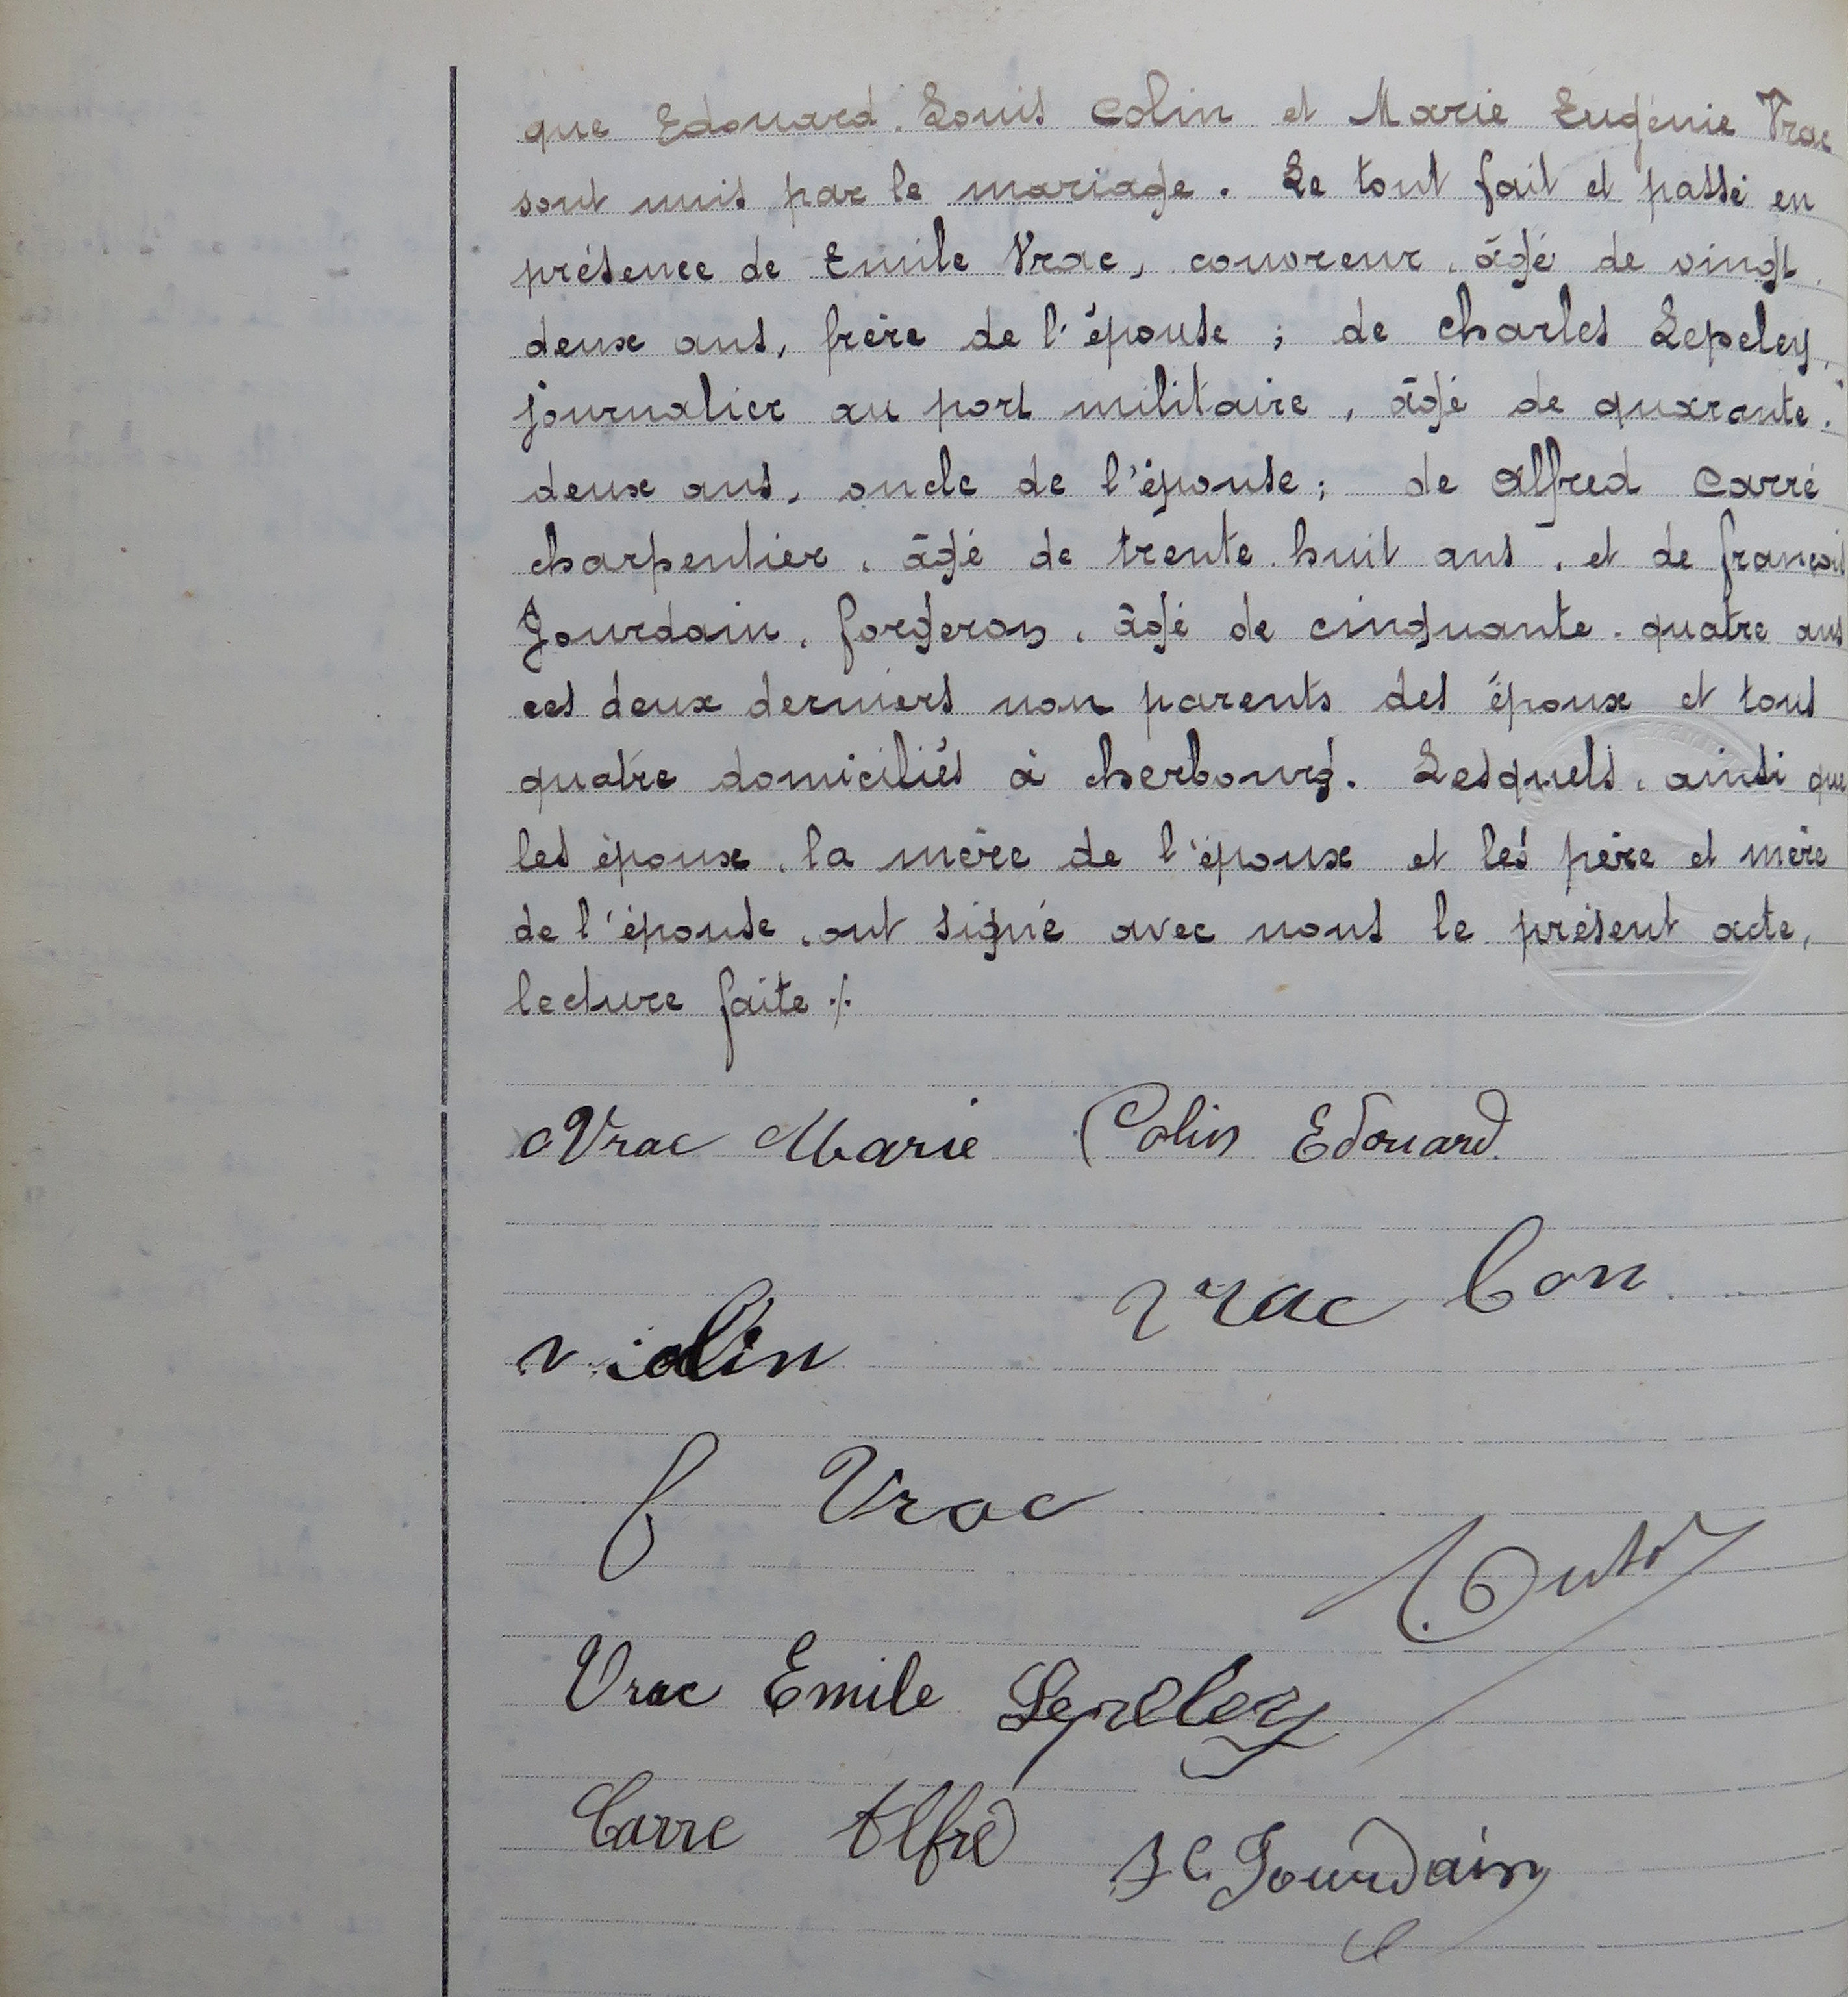 que Edouard Louis Colin et Marie Eugénie Vrac
sont unis par le mariage. Le tout fait et passé en
présence de Emile Vrac, couvreur, âgé de vingt
deux ans, frère de l'épouse ; de Charles Lepeley,
journalier au port militaire, âgé de quarante
deux ans, oncle de l'épouse ; de Alfred Carré
charpentier, âgé de trente huit ans, et de françois
Jourdain, forgeron, âgé de cinquante-quatre ans
ces deux derniers non parents des époux et tous
quatre domiciliés à Cherbourg. Lesquels, ainsi que
les époux, la mère de l'époux et les père et mère
de l'épouse, ont signé avec nous le présent acte,
lecture faite ./.
Vrac Marie Colin Edouard
Vrac
v colin
f Vrac
Vrac Emile Lepeley
Carre Alfred
Jourdain